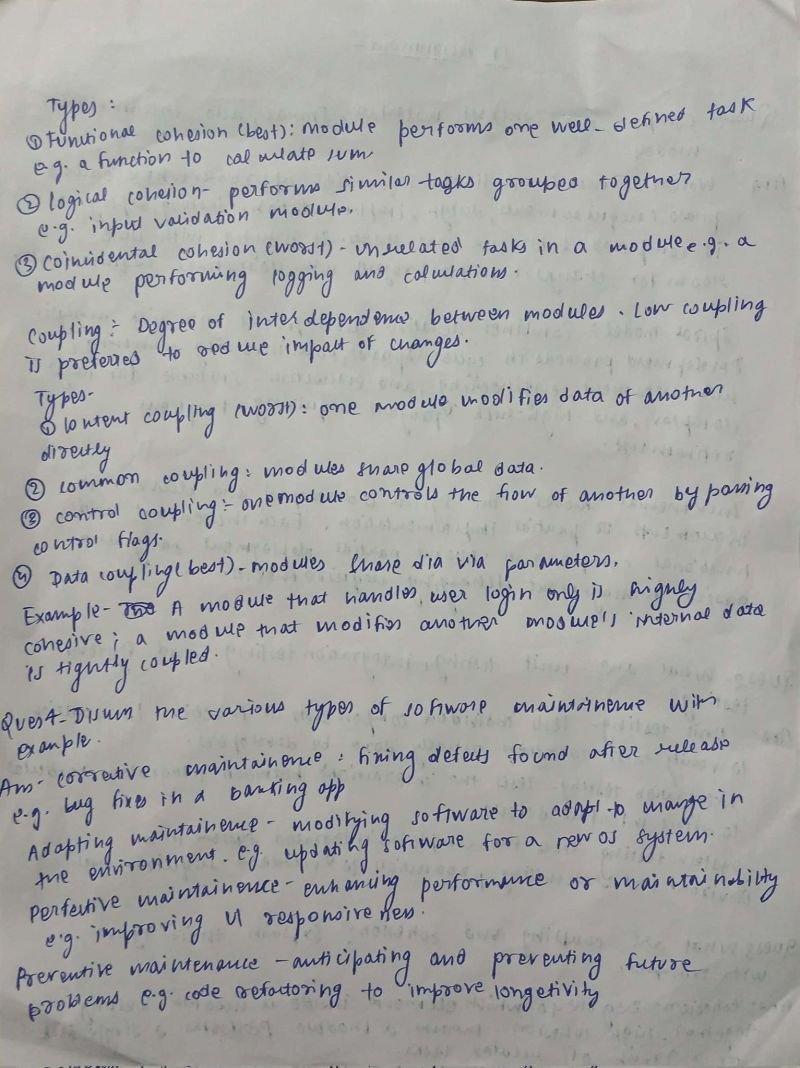 Types :
① Functional cohesion (best): module performs one well-defined task
e.g. a function to calculate sum
② logical cohesion- performs similar tasks grouped together
e.g. input validation module.
③ Coincidental cohesion (worst) - unrelated tasks in a module e.g. a
module performing logging and calculations.
Coupling :- Degree of interdependence between modules. Low coupling
is preferred to reduce impact of changes.
Types-
① Content coupling (worst): one module modifies data of another
directly
② common coupling: modules share global data.
③ control coupling:- one module controls the flow of another by passing
control flags.
④ Data coupling (best) - modules share dia via parameters.
Example- A module that handles user login only is highly
cohesive; a module that modifies another module's internal data
is tightly coupled.
Ques4- Discuss the various types of software maintainence with
example.
Ans- corrective maintainence : fixing defects found after release
e.g. bug fixes in a banking app
Adapting maintainence - modifying software to adapt to change in
the environment. e.g. updating software for a new os system.
perfective maintainence - enhancing performance or maintainability
e.g. improving UI responsiveness.
Preventive maintenance - anticipating and preventing future
problems e.g. code refactoring to improve longetivity